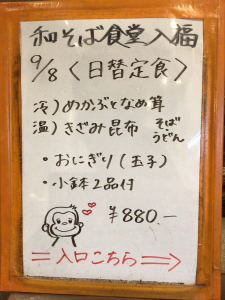 和そば食堂入福
9/8〈日替定食〉
冷)めかぶとなめ茸
温)きざみ昆布 そば うどん
・おにぎり(玉子)
・小鉢2品付
¥880.-
=入口こちら⇒